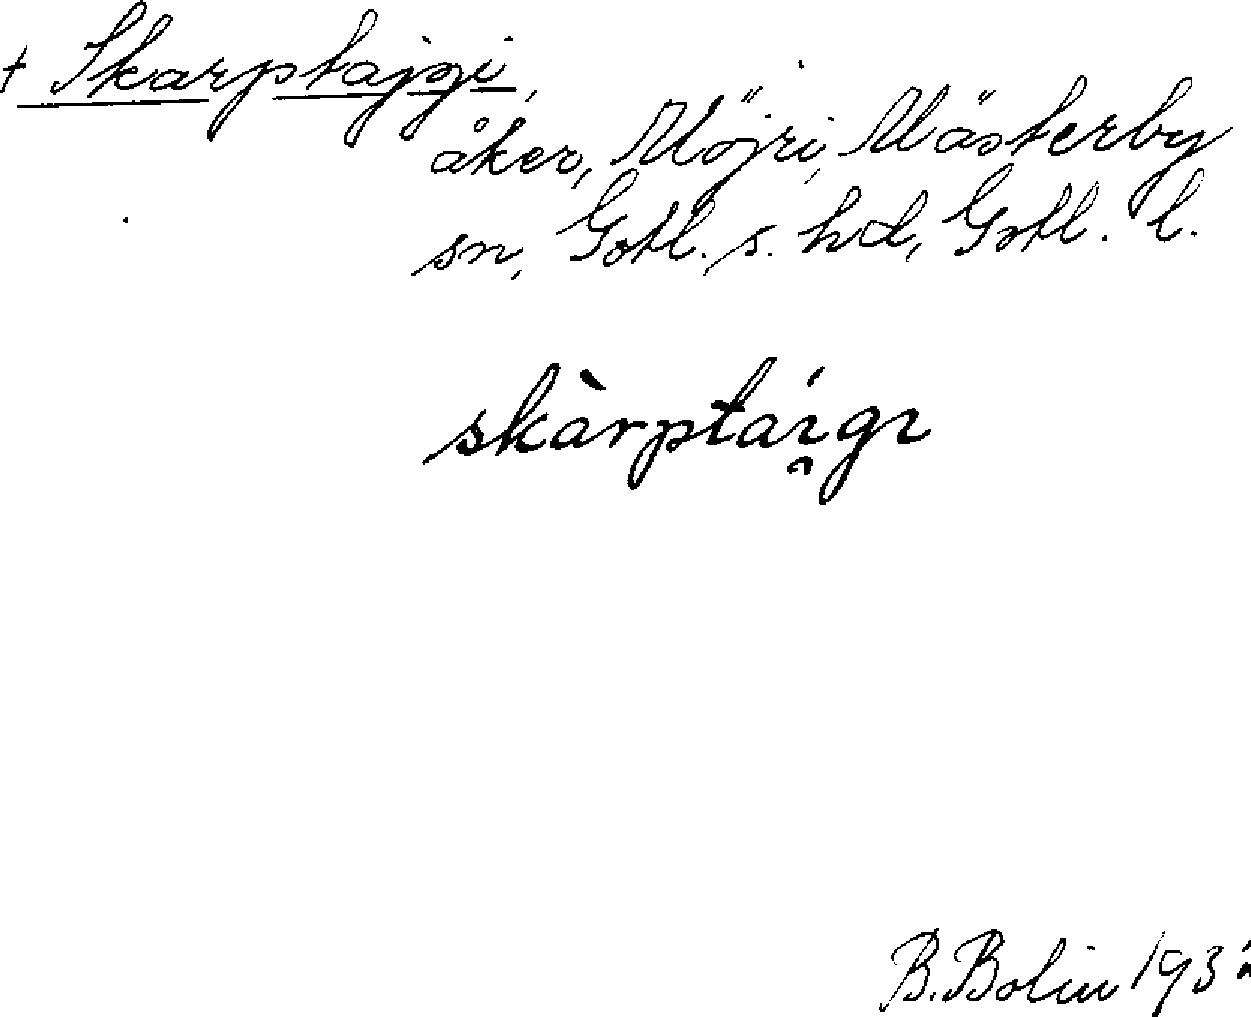 + Skarptajgi,
åker, Möjri, Mästerby
sn, Gotl. s. hd, Gotl. l.
skàrptáı̯gı
B. Bolin